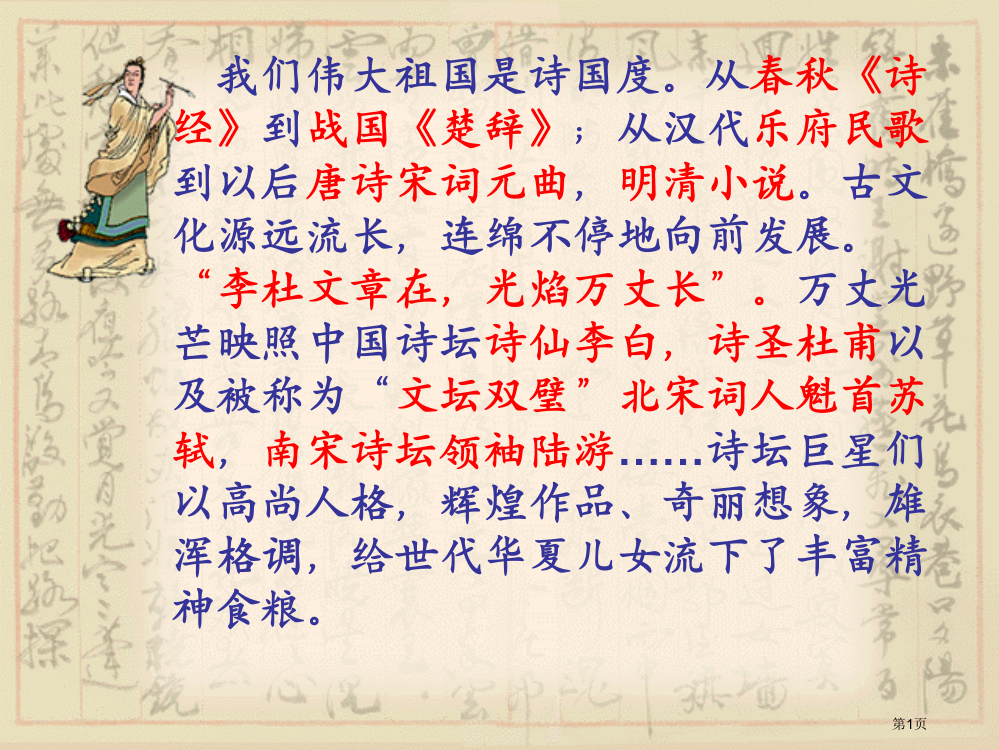 我们伟大祖国是诗国度。从春秋《诗
经》到战国《楚辞》；从汉代乐府民歌
到以后唐诗宋词元曲，明清小说。古文
化源远流长，连绵不停地向前发展。
“李杜文章在，光焰万丈长”。万丈光
芒映照中国诗坛诗仙李白，诗圣杜甫以
及被称为“文坛双璧”北宋词人魁首苏
轼，南宋诗坛领袖陆游……诗坛巨星们
以高尚人格，辉煌作品、奇丽想象，雄
浑格调，给世代华夏儿女流下了丰富精
神食粮。
第1页